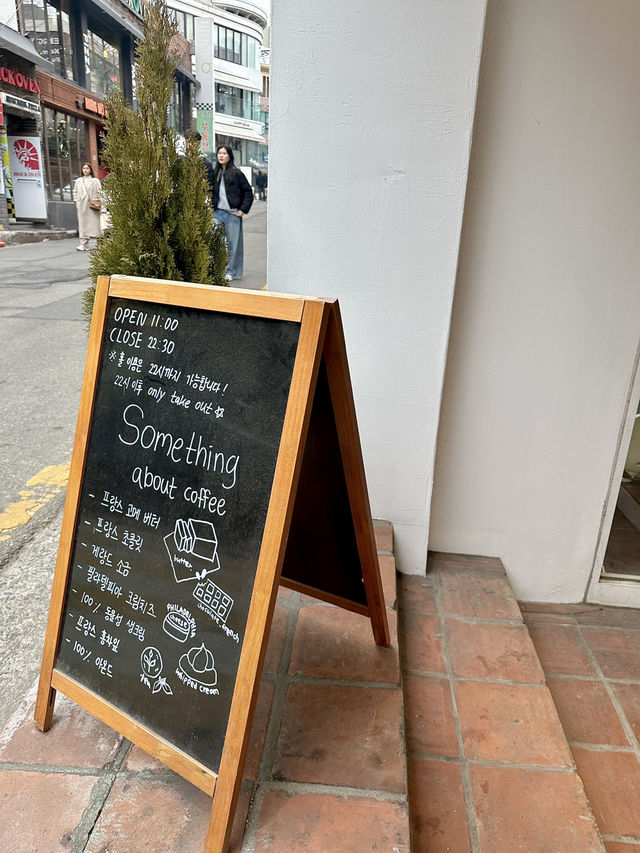 OPEN 11:00
CLOSE 22:30
※ 홀 이용은 22시까지 가능합니다!
22시 이후 only take out ☆
Something
about coffee
- 프랑스 고메 버터
- 프랑스 초콜릿
- 게랑드 소금
- 필라델피아 크림치즈
- 100% 동물성 생크림
- 프랑스 홍차잎
- 100% 아몬드
butter
chocolate
PHILADELPHIA
cheese
tea
whipped cream
BRICK OVEN